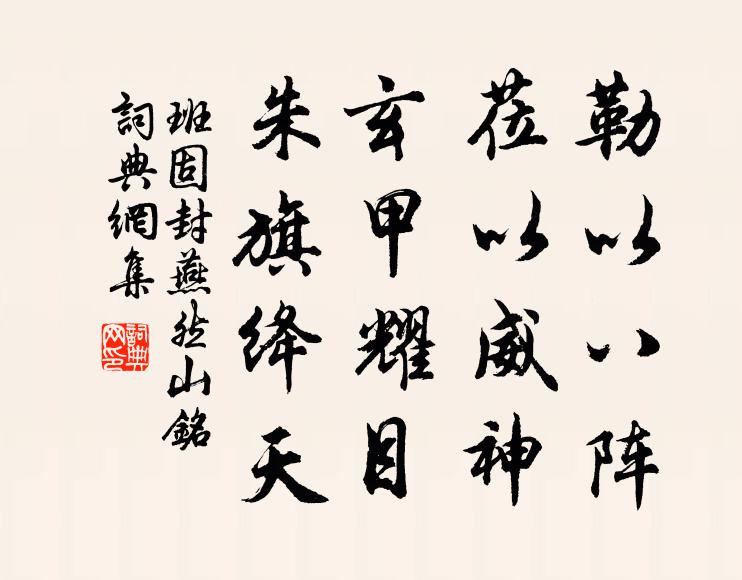 勒以八阵
莅以威神
玄甲耀目
朱旗绛天
班固封燕然山銘
詞典網集
詞典网印